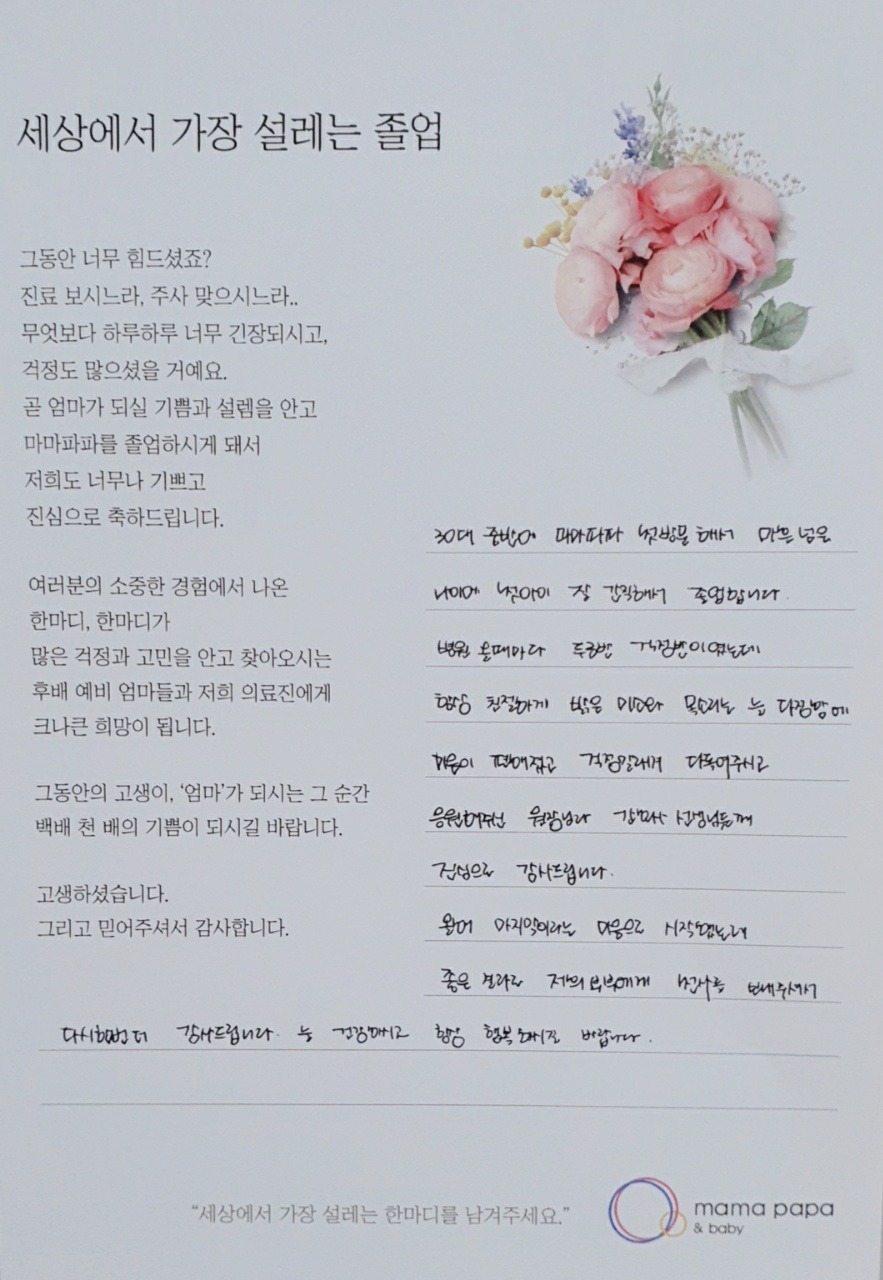 세상에서 가장 설레는 졸업
그동안 너무 힘드셨죠?
진료 보시느라, 주사 맞으시느라..
무엇보다 하루하루 너무 긴장되시고,
걱정도 많으셨을 거예요.
곧 엄마가 되실 기쁨과 설렘을 안고
마마파파를 졸업하시게 돼서
저희도 너무나 기쁘고
진심으로 축하드립니다.
여러분의 소중한 경험에서 나온
한마디, 한마디가
많은 걱정과 고민을 안고 찾아오시는
후배 예비 엄마들과 저희 의료진에게
크나큰 희망이 됩니다.
그동안의 고생이, ‘엄마’가 되시는 그 순간
백배 천 배의 기쁨이 되시길 바랍니다.
고생하셨습니다.
그리고 믿어주셔서 감사합니다.
30대 중반에 마마파파 첫방문해서 마흔 넘은
나이에 첫아이 잘 간직해서 졸업합니다.
병원 올때마다 두근반 걱정반이였는데
항상 친절하게 밝은 미소와 목소리로 늘 다정함에
마음이 편해졌고 걱정말라며 다독여주시고
응원해주신 원장님과 간호사 선생님들께
진심으로 감사드립니다.
올해 마지막이라는 마음으로 시작했는데
좋은 결과로 저희 부부에게 천사를 보내주셔서
다시한번 더 감사드립니다. 늘 건강하시고 항상 행복하시길 바랍니다.
“세상에서 가장 설레는 한마디를 남겨주세요.”
mama papa
& baby